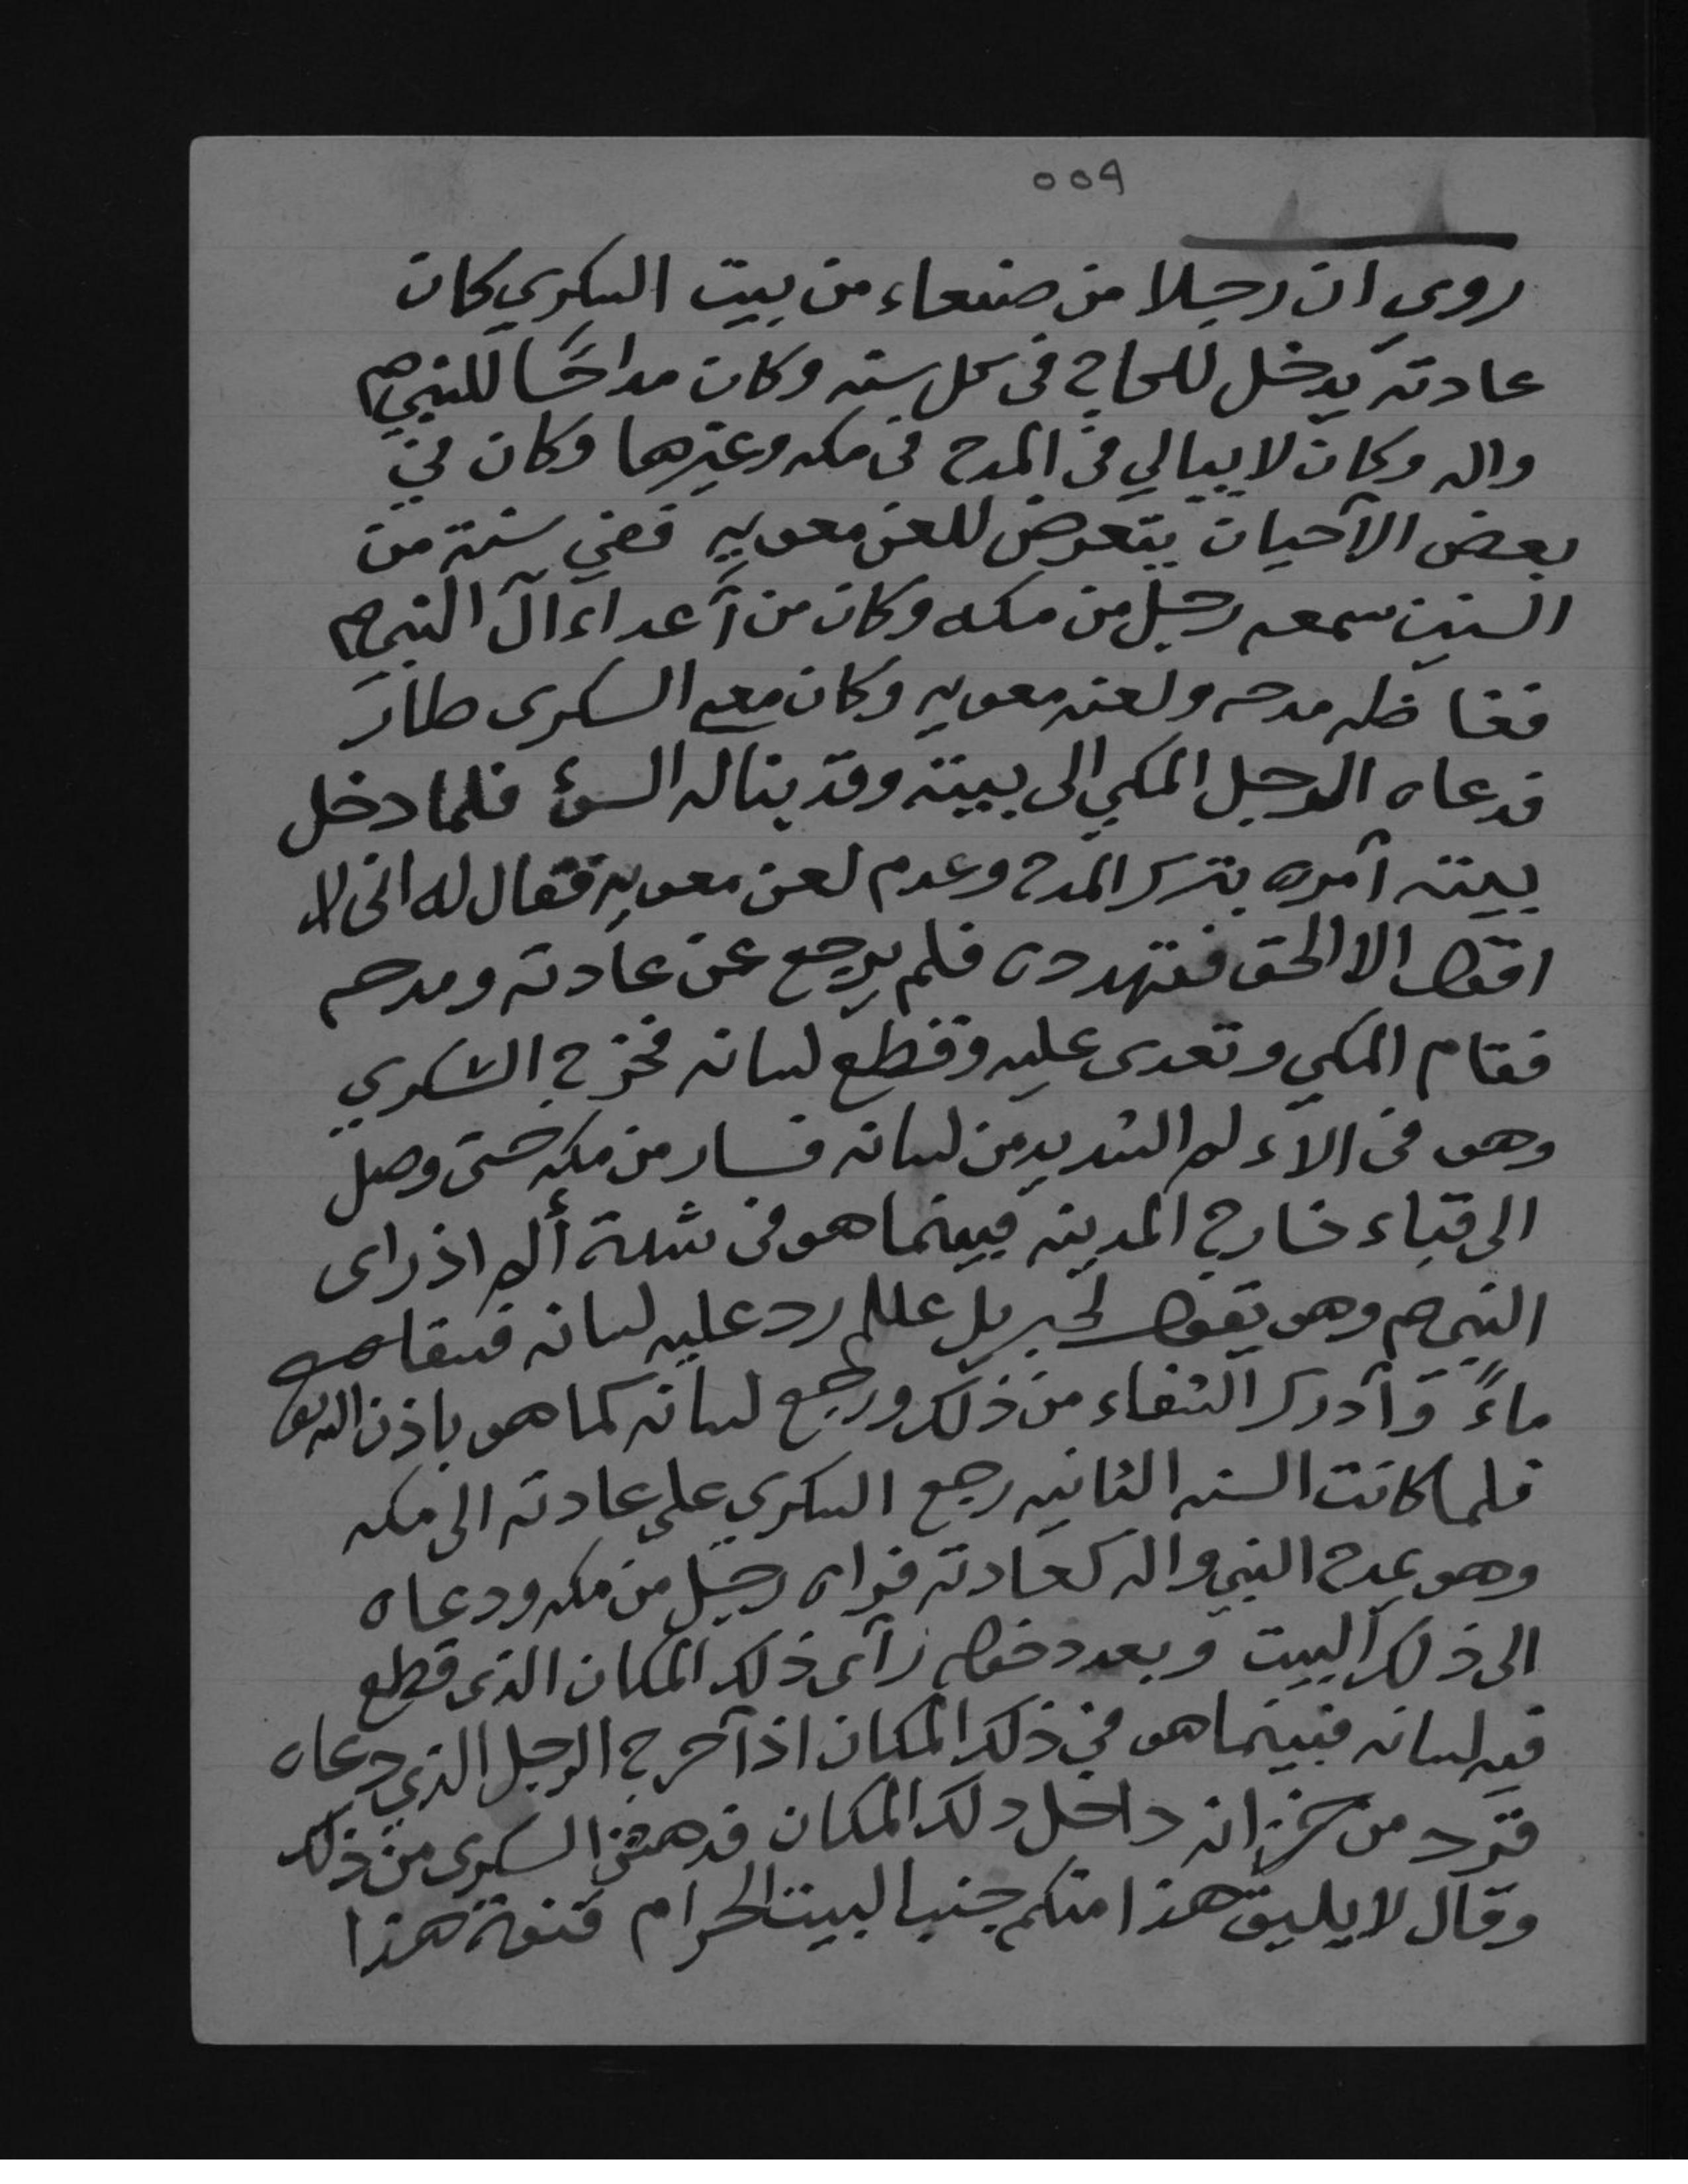 ٥٥٩
روي ان رجلا من صنعاء من بيت السكري كان
عادته يدخل للحاج في كل سنه وكان مداحًا للنبي صم
واله وكان لا يبالي في المدح في مكه وغيرها وكان في
بعض الآحيان يتعرض للعن معويه ففي سنة من
السنين سمعه رجل من مكه وكان من آعداء آل النبي صم
فغاظه مدحه ولعنه معويه وكان مع السكرى طار
فدعاه الرجل المكي الى بيته وقد يناله السؤ فلما دخل
بيته آمره بترك المدح وعدم لعن معويه فقال له اني لا
اقول الا الحق فتهدده فلم يرجع عن عادته ومدحه
فقام المكي وتعدى عليه وقطع لسانه فخرج السكري
وهو في الآلم الشديد من لسانه فسار من مكه حتى وصل
الى قباء خارج المدينه فبينما هو في شدة ألم اذ راى
النبي صم وهو يقول لجبريل علم رد عليه لسانه فسقاه
ماءً وآدرك الشفاء من ذلك ورجع لسانه كما هو باذن الله تع
فلما كانت السنه الثانيه رجع السكري على عادته الى مكه
وهو يمدح النبي واله كعادته فراه رجل من مكه ودعاه
الى ذلك البيت وبعد دخوله رآى ذلك المكان الذى قطع
فيه لسانه فبينما هو في ذلك المكان اذ آخرج الرجل الذي دعاه
قرد من خزانه داخل ذلك المكان فدهش السكرى من ذلك
وقال لا يليق هذا منكم جنب البيت الحرام قنوة هذا